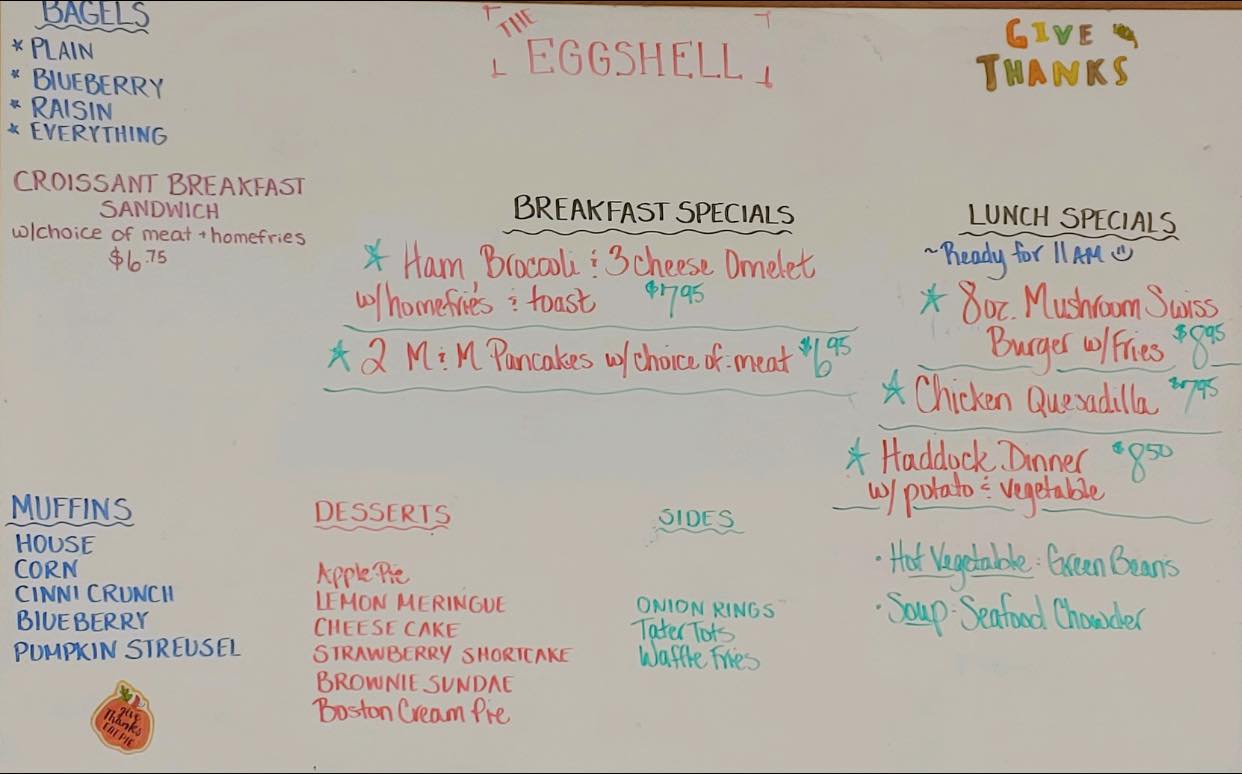 BAGELS
* PLAIN
* BLUEBERRY
* RAISIN
* EVERYTHING
CROISSANT BREAKFAST
SANDWICH
w/choice of meat + homefries
$6.75
THE
EGGSHELL
GIVE
THANKS
BREAKFAST SPECIALS
* Ham, Broccoli & 3 cheese Omelet
w/homefries & toast $7.95
* 2 M & M Pancakes w/choice of meat $6.95
LUNCH SPECIALS
~Ready for 11AM ☺
* 8oz. Mushroom Swiss
Burger w/Fries $8.95
* Chicken Quesadilla $7.95
* Haddock Dinner $8.50
w/ potato & vegetable
• Hot Vegetable: Green Beans
• Soup: Seafood Chowder
MUFFINS
HOUSE
CORN
CINNI CRUNCH
BLUEBERRY
PUMPKIN STREUSEL
give
Thanks
EAT PIE
DESSERTS
Apple Pie
LEMON MERINGUE
CHEESE CAKE
STRAWBERRY SHORTCAKE
BROWNIE SUNDAE
Boston Cream Pie
SIDES
ONION RINGS
Tater Tots
Waffle Fries